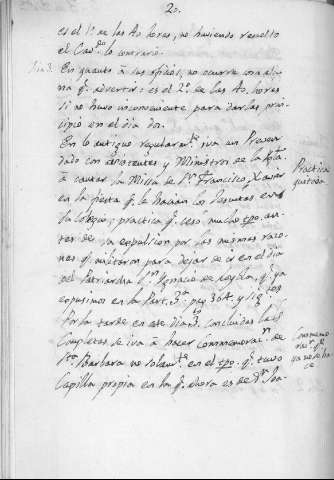 20.
es el 1º de las 40. horas, no haviendo resuelto
el Cavdo lo contrario.
Dia 3. En quanto à sus oficios, no ocurre cosa algu
na q. advertir: es el 2º de las 40. horas
si no huvo inconveniente para darlas prin
cipio en el dia dos.
En lo antiguo regularmte iva un Preven
dado con asistentes y Ministros de la Sta
à cantar la Missa de Sn Francisco Xavier
en la fiesta q. le hacian los Jesuitas en su
Colegio; practica q. cesó mucho tpo. an
tes de la expulsion por las mismas razo
nes q. militaron para dejar de ir en el dia
del Patriarcha Sn Ignacio de Loyola, q. ya
expusimos en la Part. 3a pag. 364. y sig.
Practica
quitada.
Por la tarde en este dia 3. concluidas las
Completas se iva à hacer commemoron de
Sta Barbara no solamte en el tpo. q. tuvo
Capilla propia en la q. ahora es de Sn
Commemo
ron q.
ya no se ha
ce